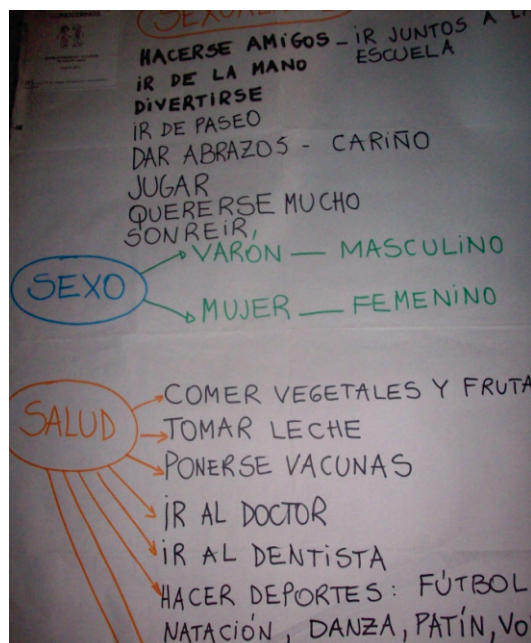 HACERSE AMIGOS – IR JUNTOS A
IR DE LA MANO ESCUELA
DIVERTIRSE
IR DE PASEO
DAR ABRAZOS - CARIÑO
JUGAR
QUERERSE MUCHO
SONREIR,
SEXO
VARÓN — MASCULINO
MUJER — FEMENINO
SALUD
COMER VEGETALES Y FRUTA
TOMAR LECHE
PONERSE VACUNAS
IR AL DOCTOR
IR AL DENTISTA
HACER DEPORTES: FÚTBOL
NATACIÓN, DANZA, PATÍN, VO